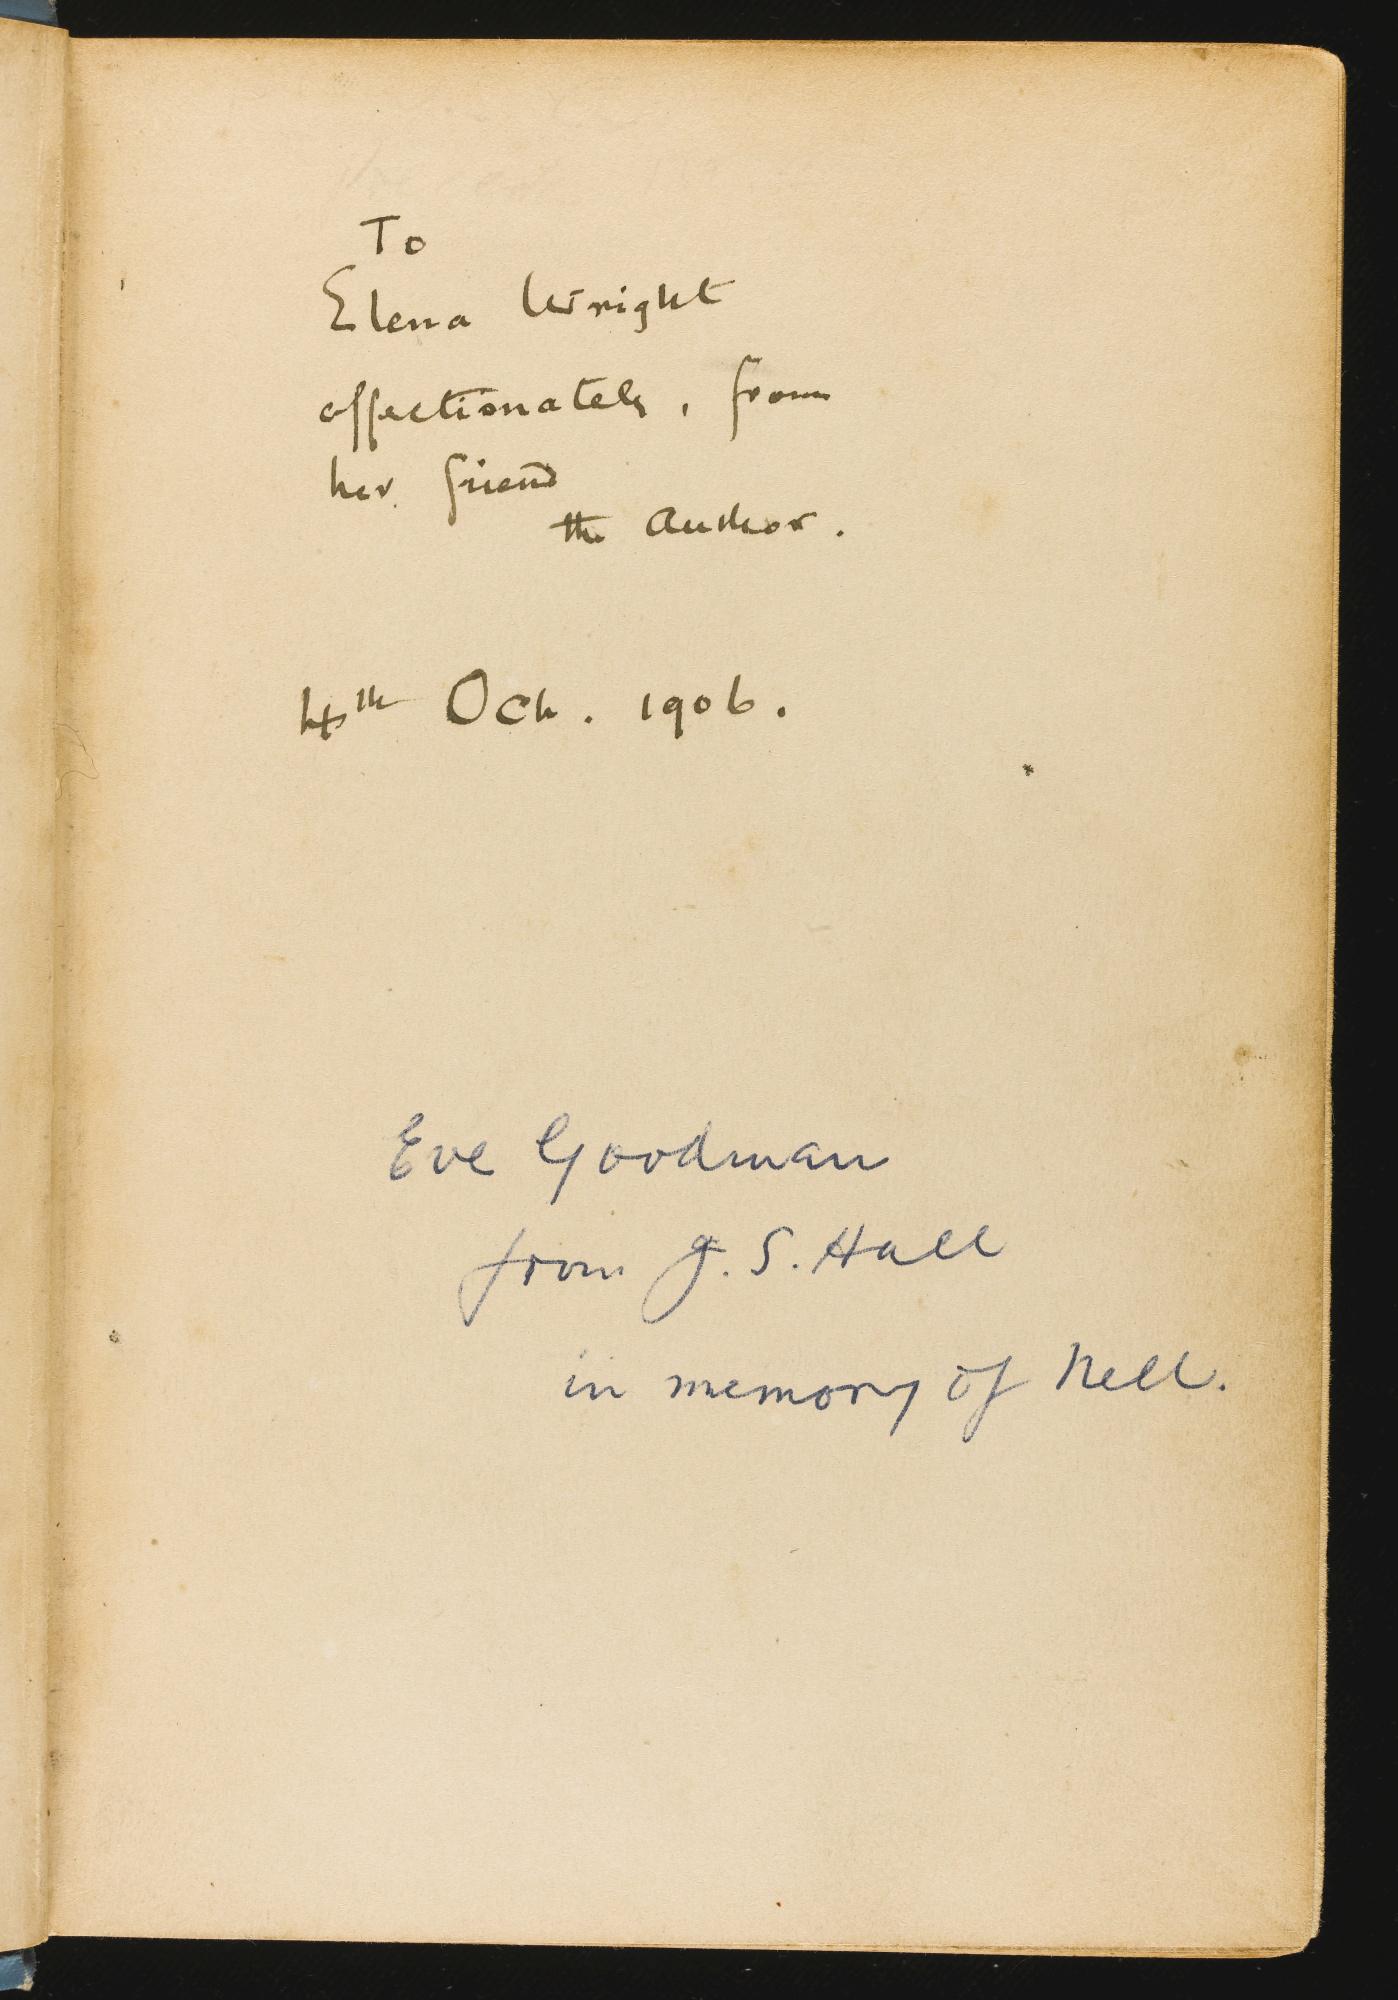 To
Elena Wright
affectionately, from
her friend
the author.
4th Oct. 1906.
Eve Goodman
from J. S. Hall
in memory of Nell.